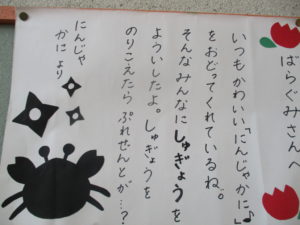 ばらぐみさんへ
いつもかわいい「にんじゃかに」♪
をおどってくれているね。
そんなみんなにしゅぎょうを
よういしたよ。しゅぎょうを
のりこえたら ぷれぜんとが…?
にんじゃ
かにより